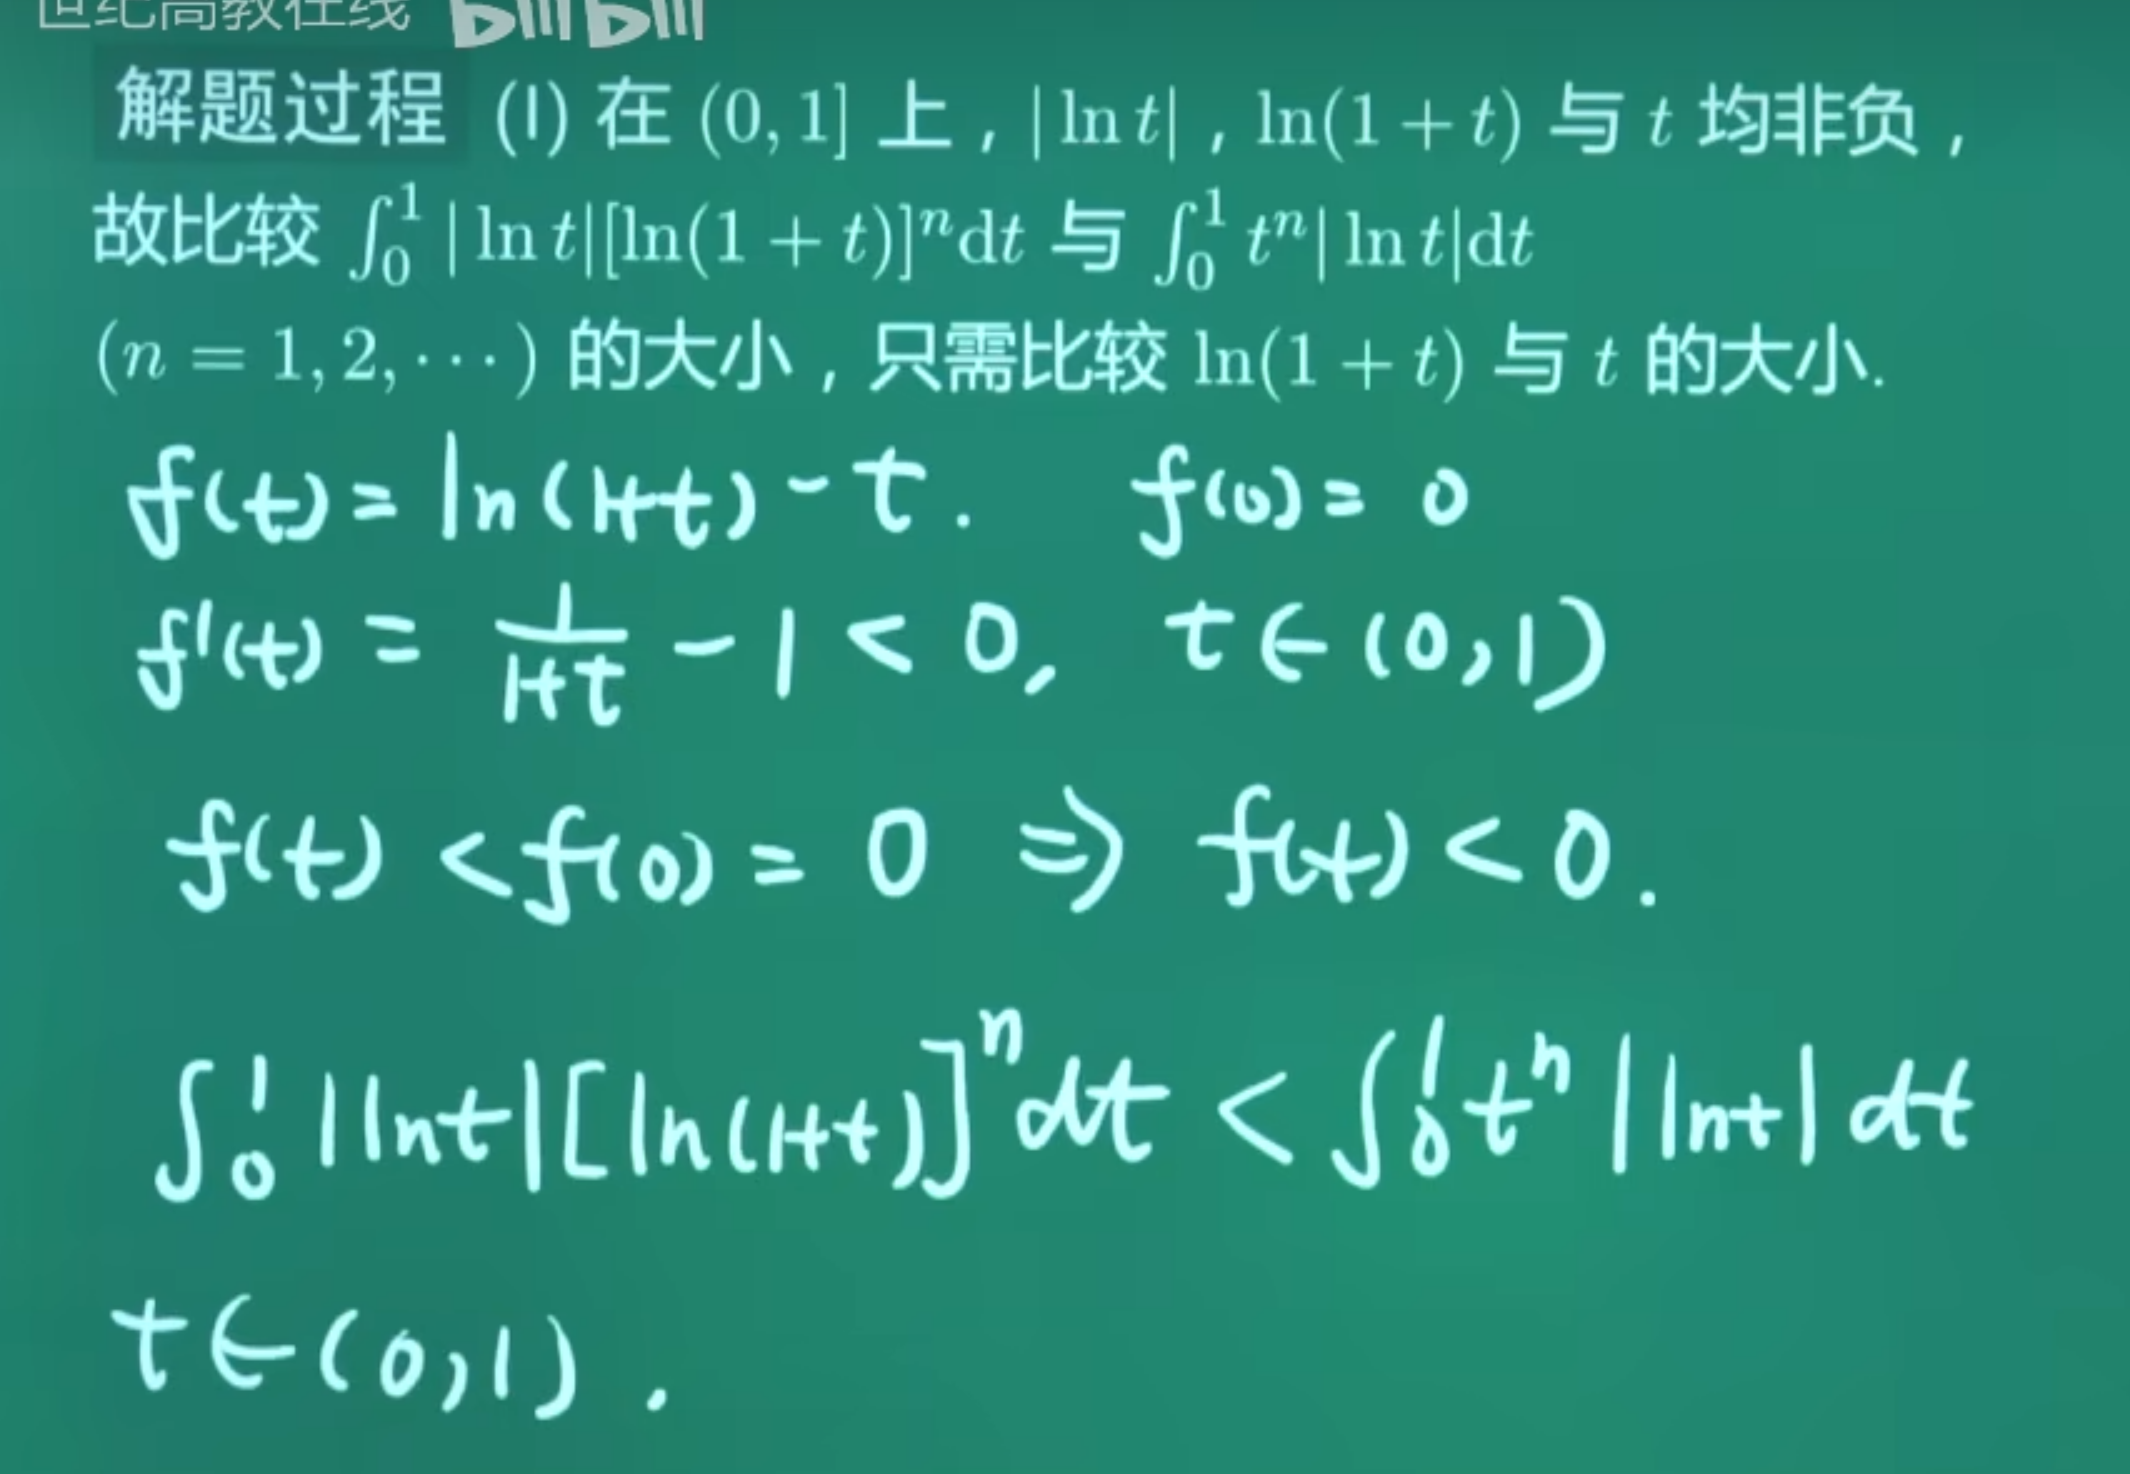 世纪高教在线 bilibili
解题过程 (I) 在 (0, 1] 上，|ln t|，ln(1 + t) 与 t 均非负，
故比较 ∫₀¹ |ln t|[ln(1 + t)]ⁿdt 与 ∫₀¹ tⁿ|ln t|dt
(n = 1, 2, ···) 的大小，只需比较 ln(1 + t) 与 t 的大小.
f(t) = ln(1+t) - t. f(0) = 0
f'(t) = 1/(1+t) - 1 < 0, t∈(0,1)
f(t) < f(0) = 0 ⇒ f(t) < 0.
∫₀¹ |lnt|[ln(1+t)]ⁿdt < ∫₀¹ tⁿ|lnt|dt
t∈(0,1).